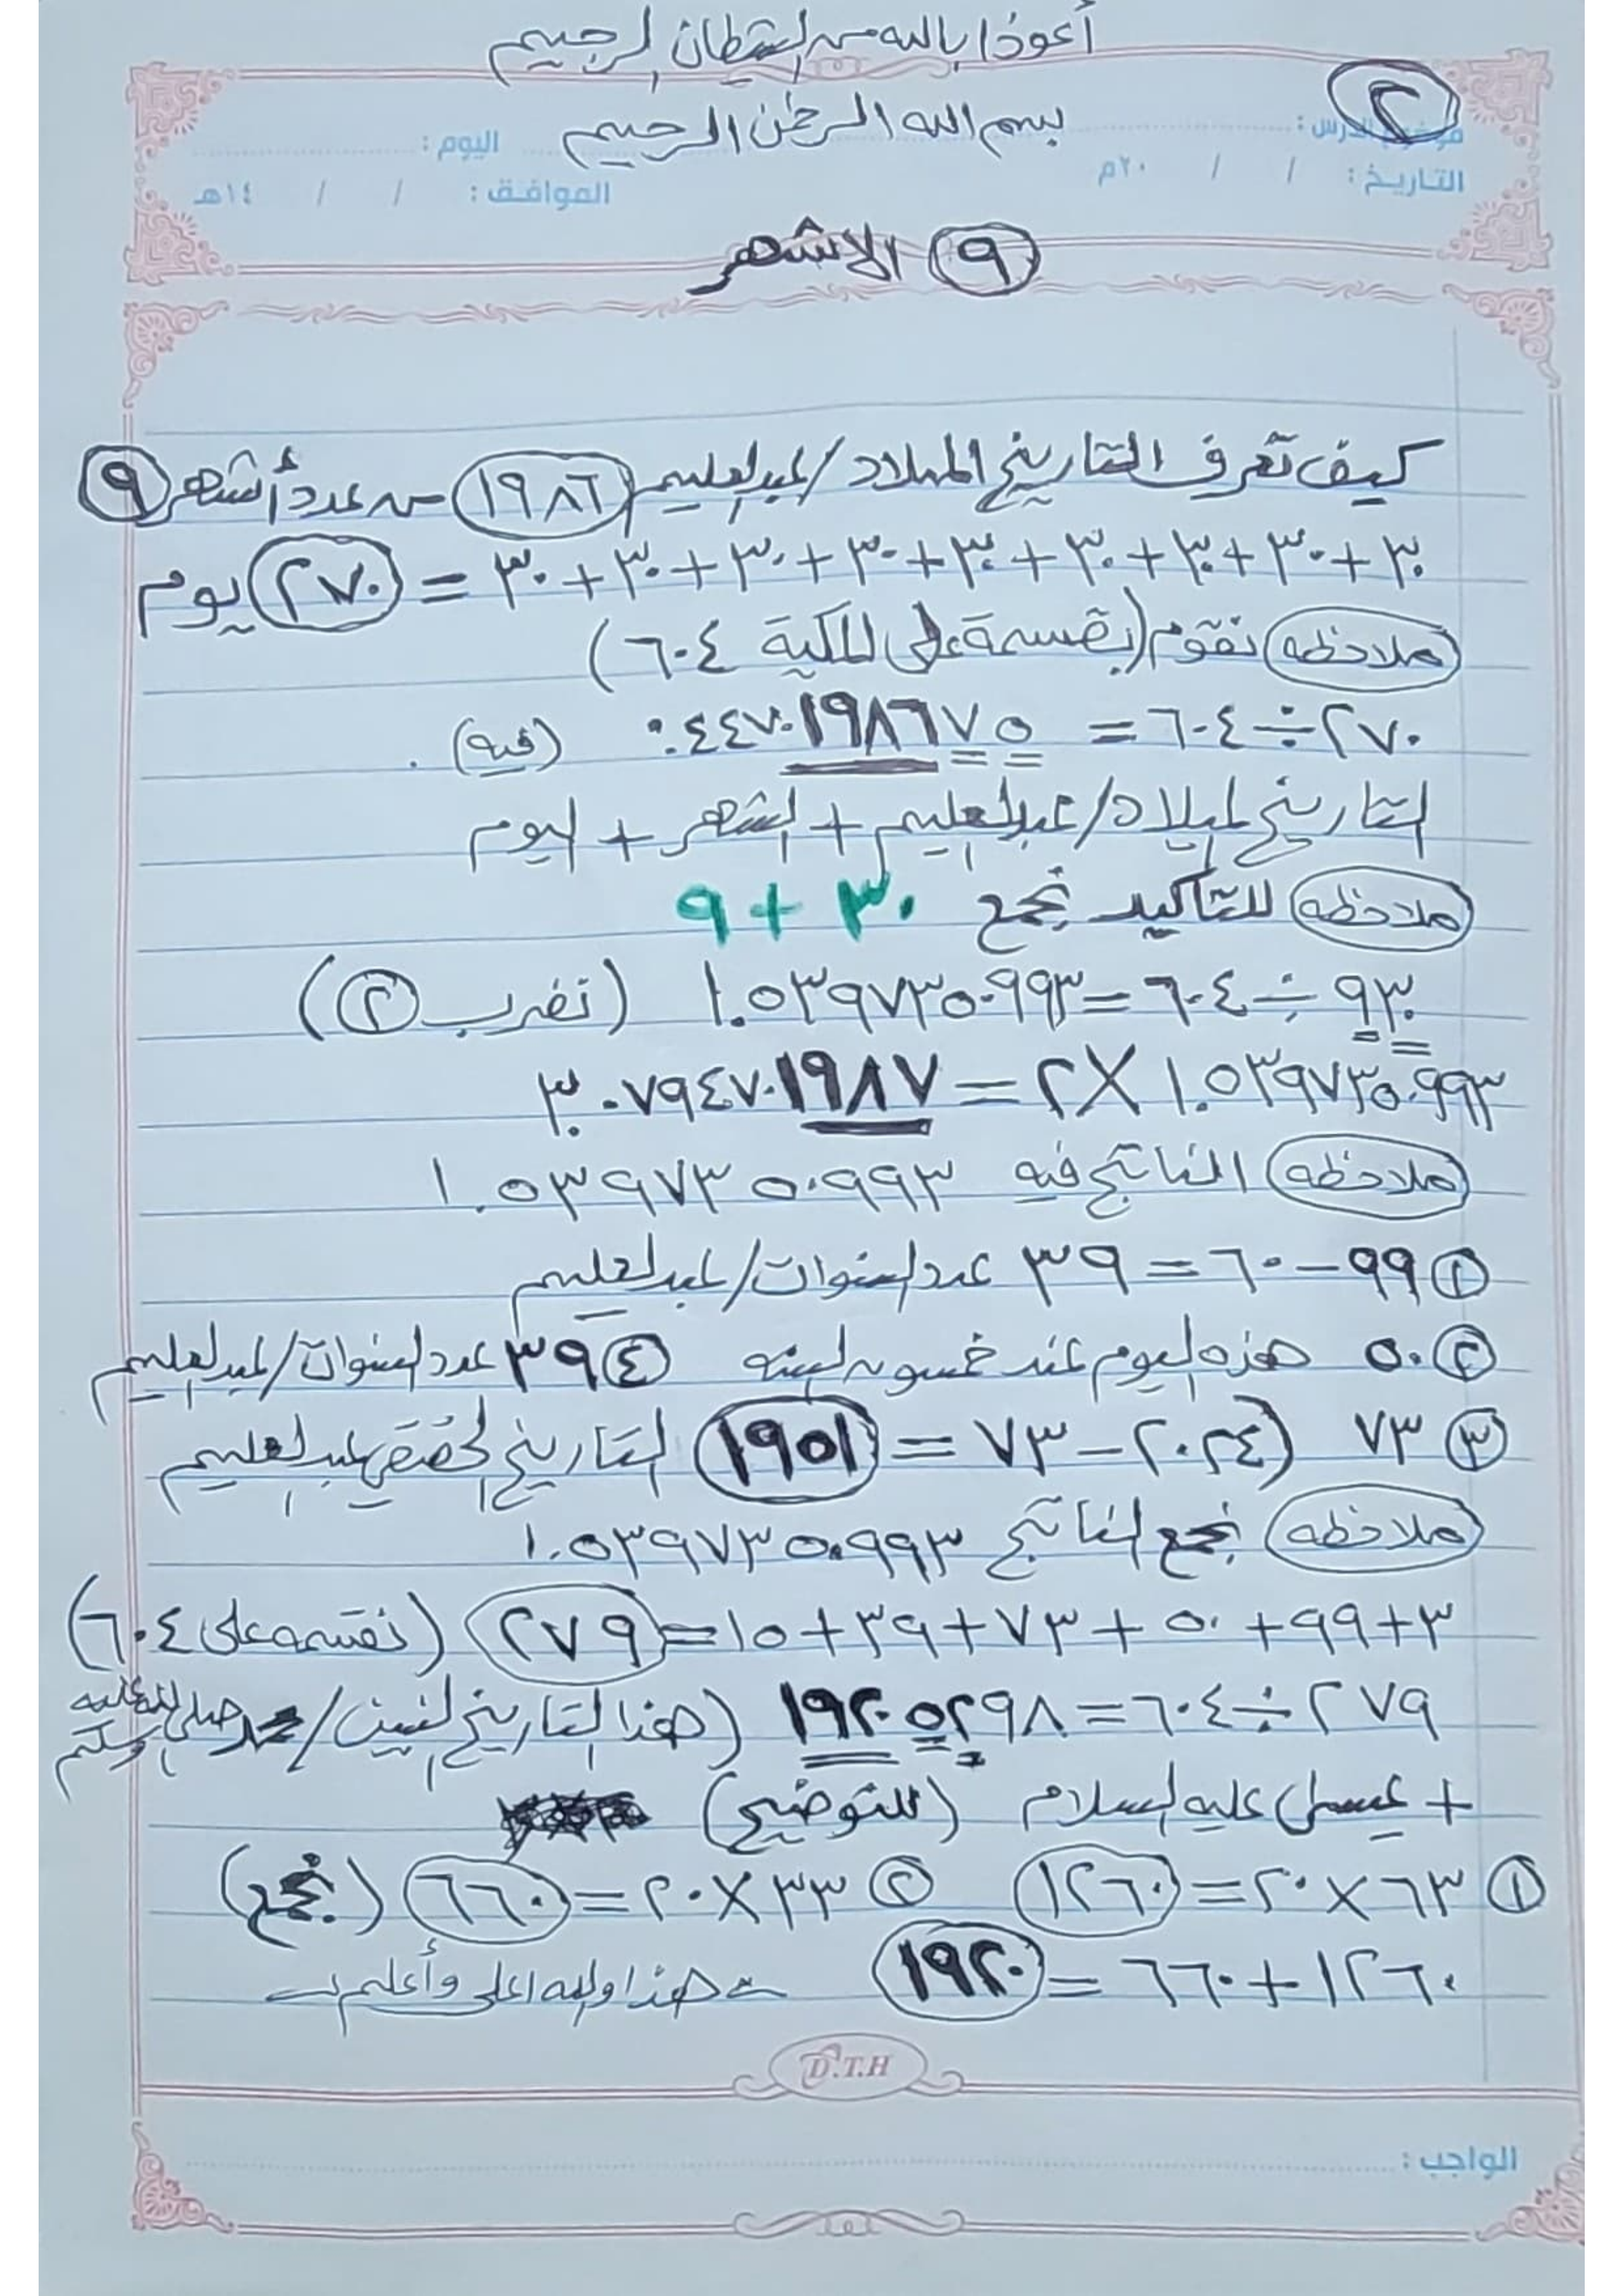 أعوذ بالله من الشيطان الرجيم
٢
موضوع الدرس :
بسم الله الرحمن الرحيم
اليوم :
التاريخ : / / ٢٠م
الموافق : / / ١٤هـ
٩ الاشهر
كيف تعرف التاريخ الميلاد/عبدالعليم ١٩٨٦ من عدد أشهر ٩
٣٠+٣٠+٣٠+٣٠+٣٠+٣٠+٣٠+٣٠+٣٠ = ٢٧٠ يوم
ملاحظه نقوم (بقسمة على المكية ٦٠٤)
٢٧٠÷٦٠٤ = ٠.٤٤٧٠١٩٨٦٧٥ (فيه) .
التاريخ لميلاد/عبدالعليم + الشهر + اليوم
ملاحظه للتأكيد نجمع ٣٠ + ٩
٩٣٠ ÷ ٦٠٤ = ١.٥٣٩٧٣٥٠٩٩٣ (نضرب ٢)
١.٥٣٩٧٣٥٠٩٩٣ X ٢ = ٣.٠٧٩٤٧٠١٩٨٧
ملاحظه الناتج فيه ١.٥٣٩٧٣٥٠٩٩٣
١ ٩٩ – ٦٠ = ٣٩ عدد السنوات/عبدالعليم
٢ ٥٠ هذه اليوم عند خمسون السنه ٤ ٣٩ عدد السنوات/عبدالعليم
٣ ٧٣ (٢٠٢٤ – ٧٣ = ١٩٥١ التاريخ الحقيقي عبدالعليم
ملاحظه نجمع الناتج ١.٥٣٩٧٣٥٠٩٩٣
٣+٩٩+٥٠+٧٣+٣٩+١٥=٢٧٩ (نقسمه على ٦٠٤)
٢٧٩÷٦٠٤=١٩٢٠٥٢٩٨ (هذا التاريخ لنبين/محمد صلى الله عليه وسلم
+ عيسى عليه السلام (للتوضيح)
١ ٦٣ X ٢٠ = ١٢٦٠ ٢ ٣٣ X ٢٠ = ٦٦٠ (نجمع)
١٢٦٠+٦٦٠ = ١٩٢٠ هذا والله اعلى وأعلم
D.T.H
الواجب :